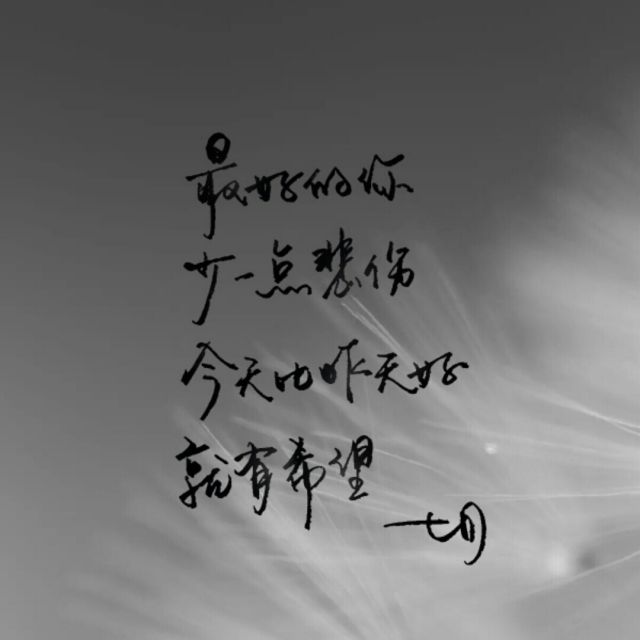 最好的你
少一点悲伤
今天比昨天好
就有希望
一七月